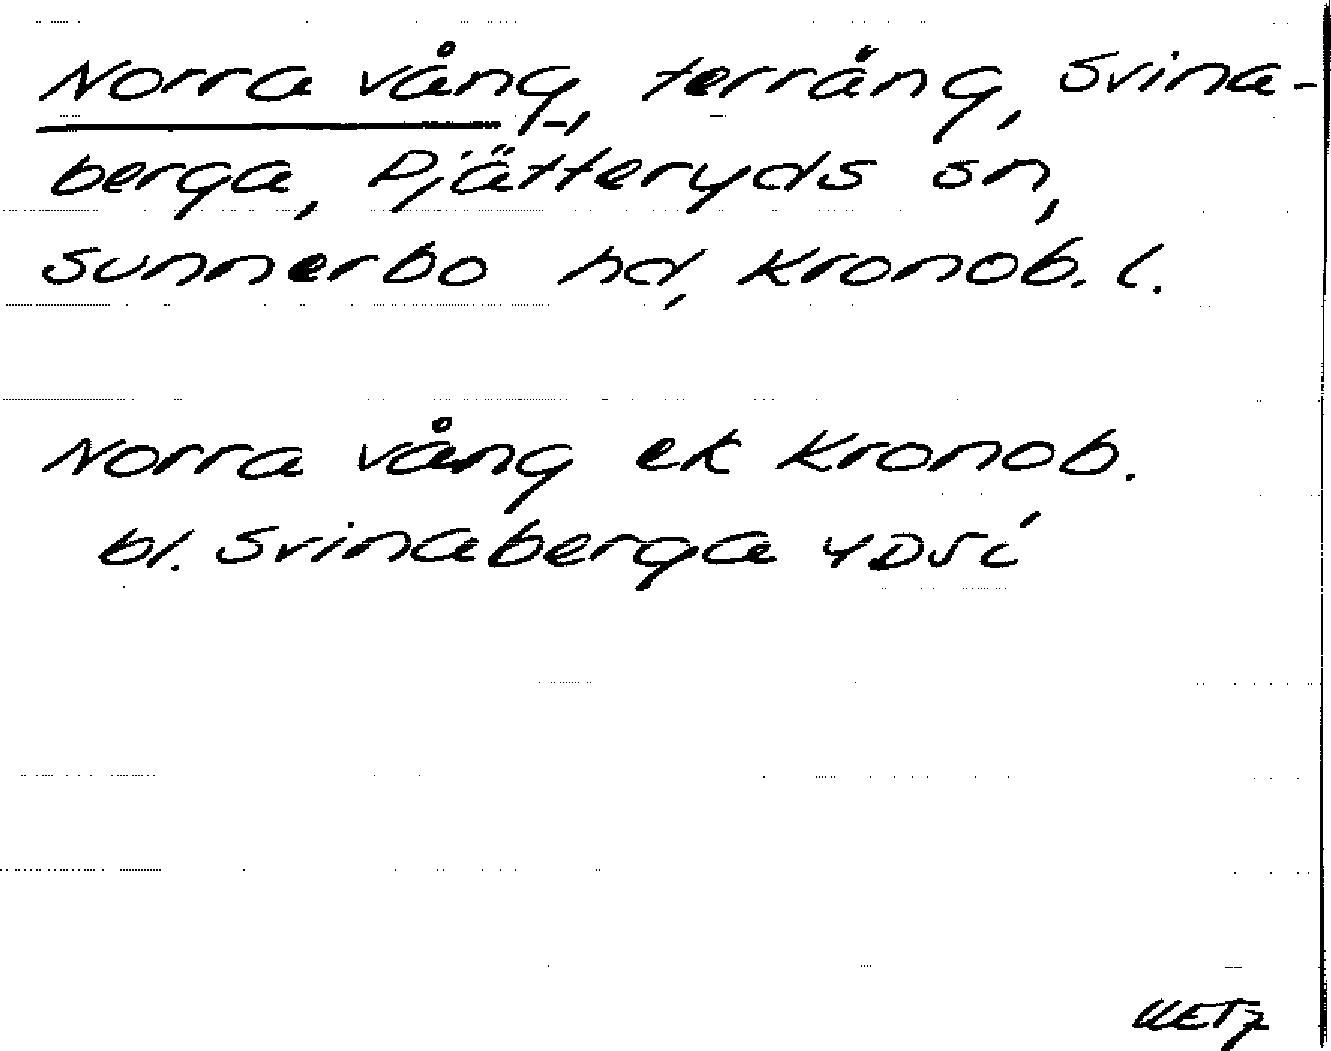 Norra vång, terräng, Svina-
berga, Pjätteryds sn,
Sunnerbo hd, Kronob. l.
Norra vång ek Kronob.
bl. Svinaberga 4D5i